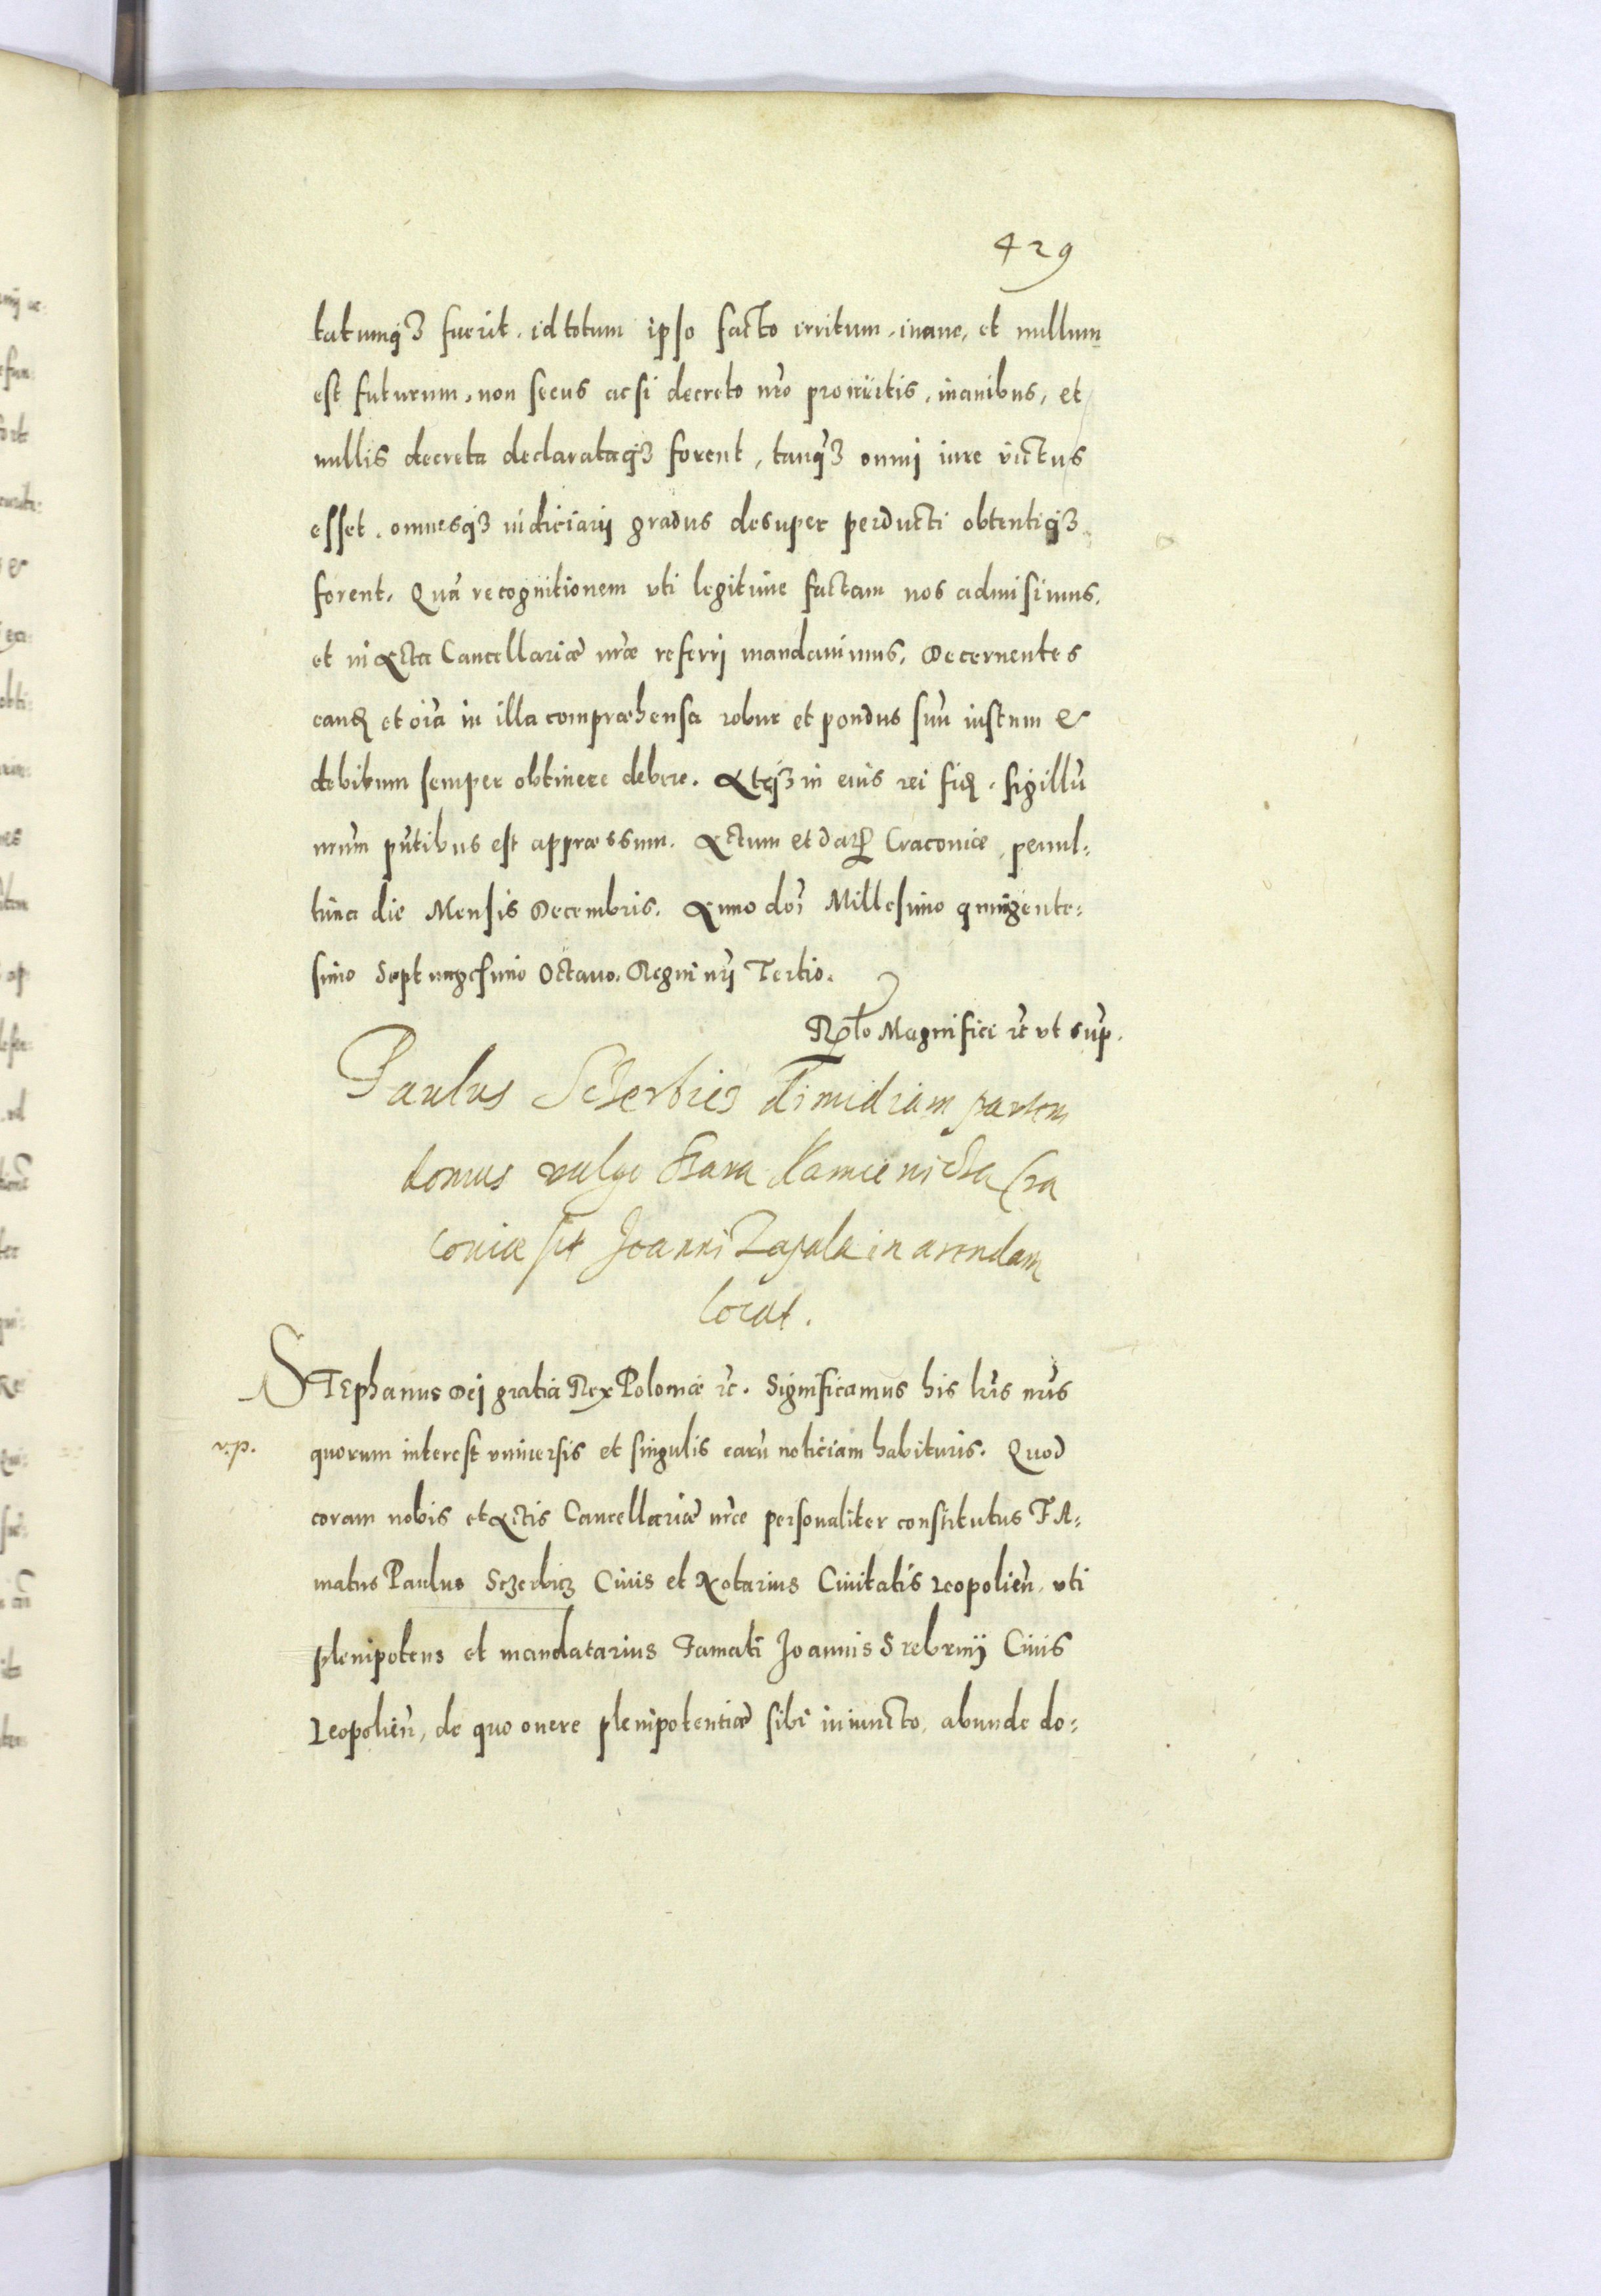 429
tatumq3 fuerit, id totum ipso facto irritum, inane, et nullum
est futurum, non secus acsi decreto nr̃o pro irritis, inanibus, et
nullis decreta declarataq3 forent, tanq̃3 omni iure victus
esset, omnesq3 iudiciarij gradus desuper perducti obtentiq3
forent. Quã recognitionem vti legitime factam nos admisimus,
et in Acta Cancellariæ nr̃æ referri mandauimus, Decernentes
eand et oĩa in illa compræhensa robur et pondus suũ iustum &
debitum semper obtinere debere. Atq3 in eius rei fid, sigillũ
nr̃um pñtibus est appræssum. Actum et dat Cracouiæ, penul=
tima die Mensis Decembris. Anno doĩ Millesimo quingente=
simo Septuagesimo Octauo. Regni nr̃i Tertio.
Rlto Magnifici rc̃ vt sup.
Paulus Sczerbicz dimidiam partem
domus vulgo Szara Kamienicza Cra
couiæ sit Joanni Zapala in arendam
locat.
STEphanus Dej gratia Rex Poloniæ rc̃. Significamus his lr̃is nr̃is
v.p. quorum interest vniuersis et singulis earũ noticiam habituris. Quod
coram nobis et Actis Cancellariæ nr̃æ personaliter constitutus FA=
matus Paulus Sczerbicz Ciuis et Notarius Ciuitatis Leopolieñ, vti
plenipotens et mandatarius Famati Joannis Srebrnij Ciuis
Leopolieñ, de quo onere plenipotentiæ sibi iniuncto, abunde do=